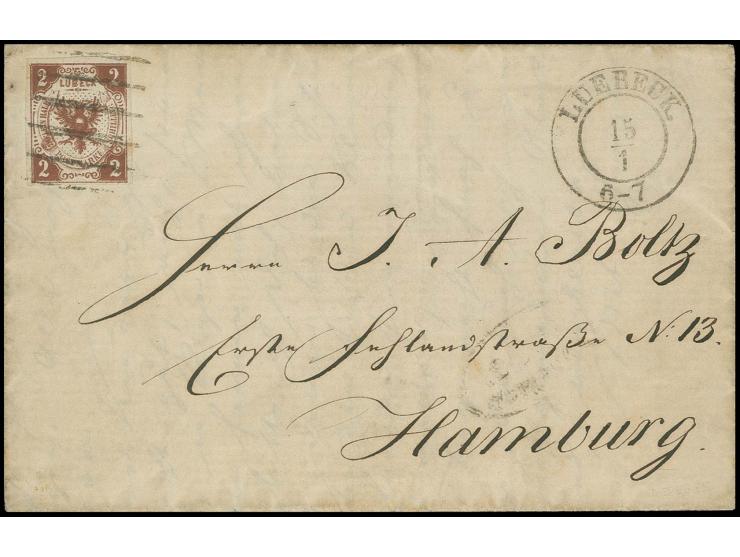 2 2
LÜBECK
2 2
LUEBECK.
15
1
6-7
Herrn J. A. Boltz
Erste Fehlandstraße No: 13.
Hamburg.